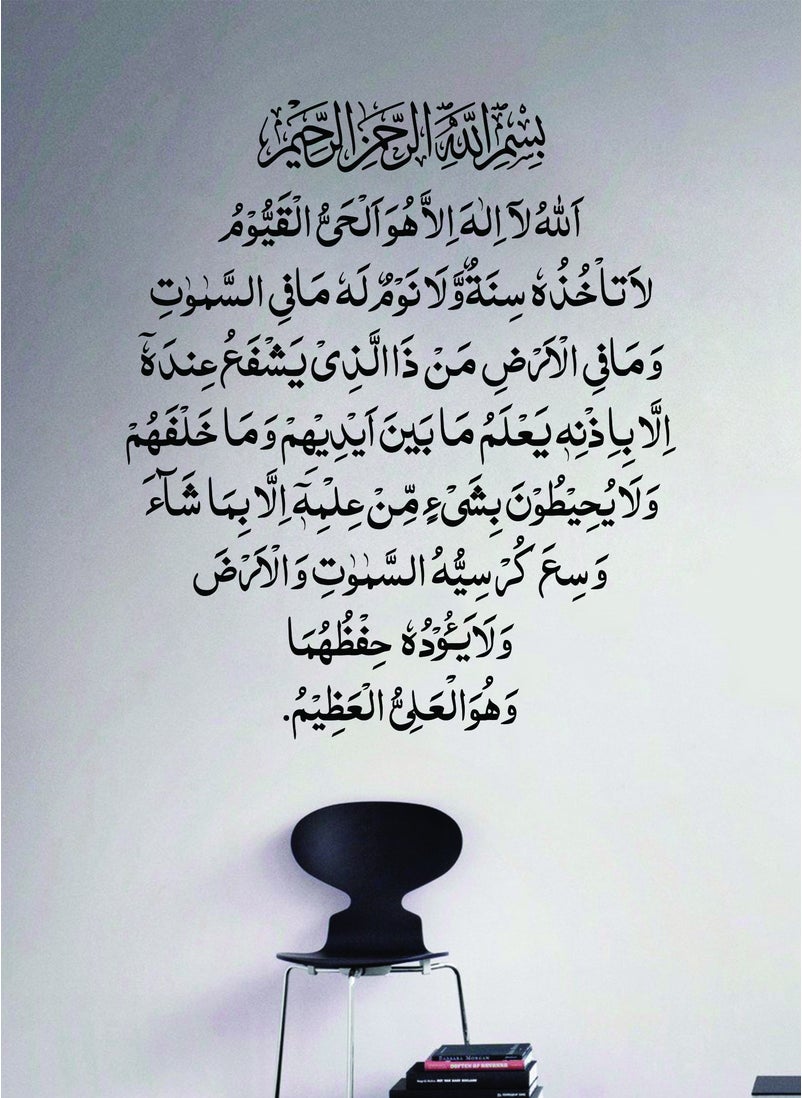 بِسْمِ اللّٰهِ الرَّحْمٰنِ الرَّحِيْمِ
اَللّٰهُ لَآ اِلٰهَ اِلاَّ هُوَ اَلْحَىُّ الْقَيُّوْمُ
لاَ تَاْخُذُهٗ سِنَةٌ وَّلَا نَوْمٌ لَهٗ مَا فِى السَّمٰوٰتِ
وَمَا فِى الْاَرْضِ مَنْ ذَا الَّذِىْ يَشْفَعُ عِندَهٗٓ
اِلَّا بِاِذْنِهٖ يَعْلَمُ مَا بَيْنَ اَيْدِيْهِمْ وَمَا خَلْفَهُمْ
وَلَا يُحِيْطُوْنَ بِشَىْءٍ مِّنْ عِلْمِهٖٓ اِلَّا بِمَا شَآءَ
وَسِعَ كُرْسِيُّهُ السَّمٰوٰتِ وَالْاَرْضَ
وَلَا يَـُٔوْدُهٗ حِفْظُهُمَا
وَهُوَ الْعَلِىُّ الْعَظِيْمُ.
BARBARA MORGAN